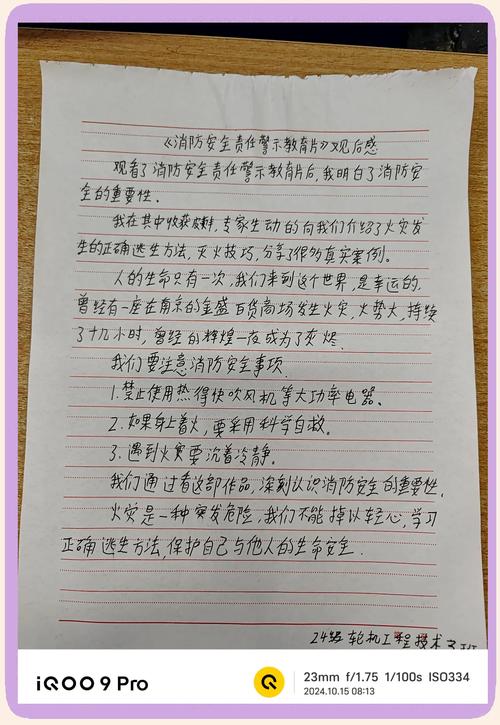 《消防安全责任警示教育片》观后感
观看了消防安全责任警示教育片后,我明白了消防安
全的重要性。
我在其中收获颇鲜,专家生动的向我们介绍了火灾发
生的正确逃生方法,灭火技巧,分享了很多真实案例。
人的生命只有一次,我们来到这个世界,是幸运的,
曾经有一座在南京的金盛百货商场发生火灾,火势大,持续
了十几小时,曾经的辉煌一夜成为了灰烬.
我们要注意消防安全事项.
1.禁止使用热得快吹风机等大功率电器。
2.如果身上着火,要采用科学自救。
3.遇到火灾要沉着冷静。
我们通过看这部作品,深刻认识消防安全的重要性,
火灾是一种突发危险,我们不能掉以轻心,学习
正确逃生方法,保护自己与他人的生命安全.
24级 轮机工程技术3班
iQOO 9 Pro
23mm f/1.75 1/100s ISO334
2024.10.15 08:13